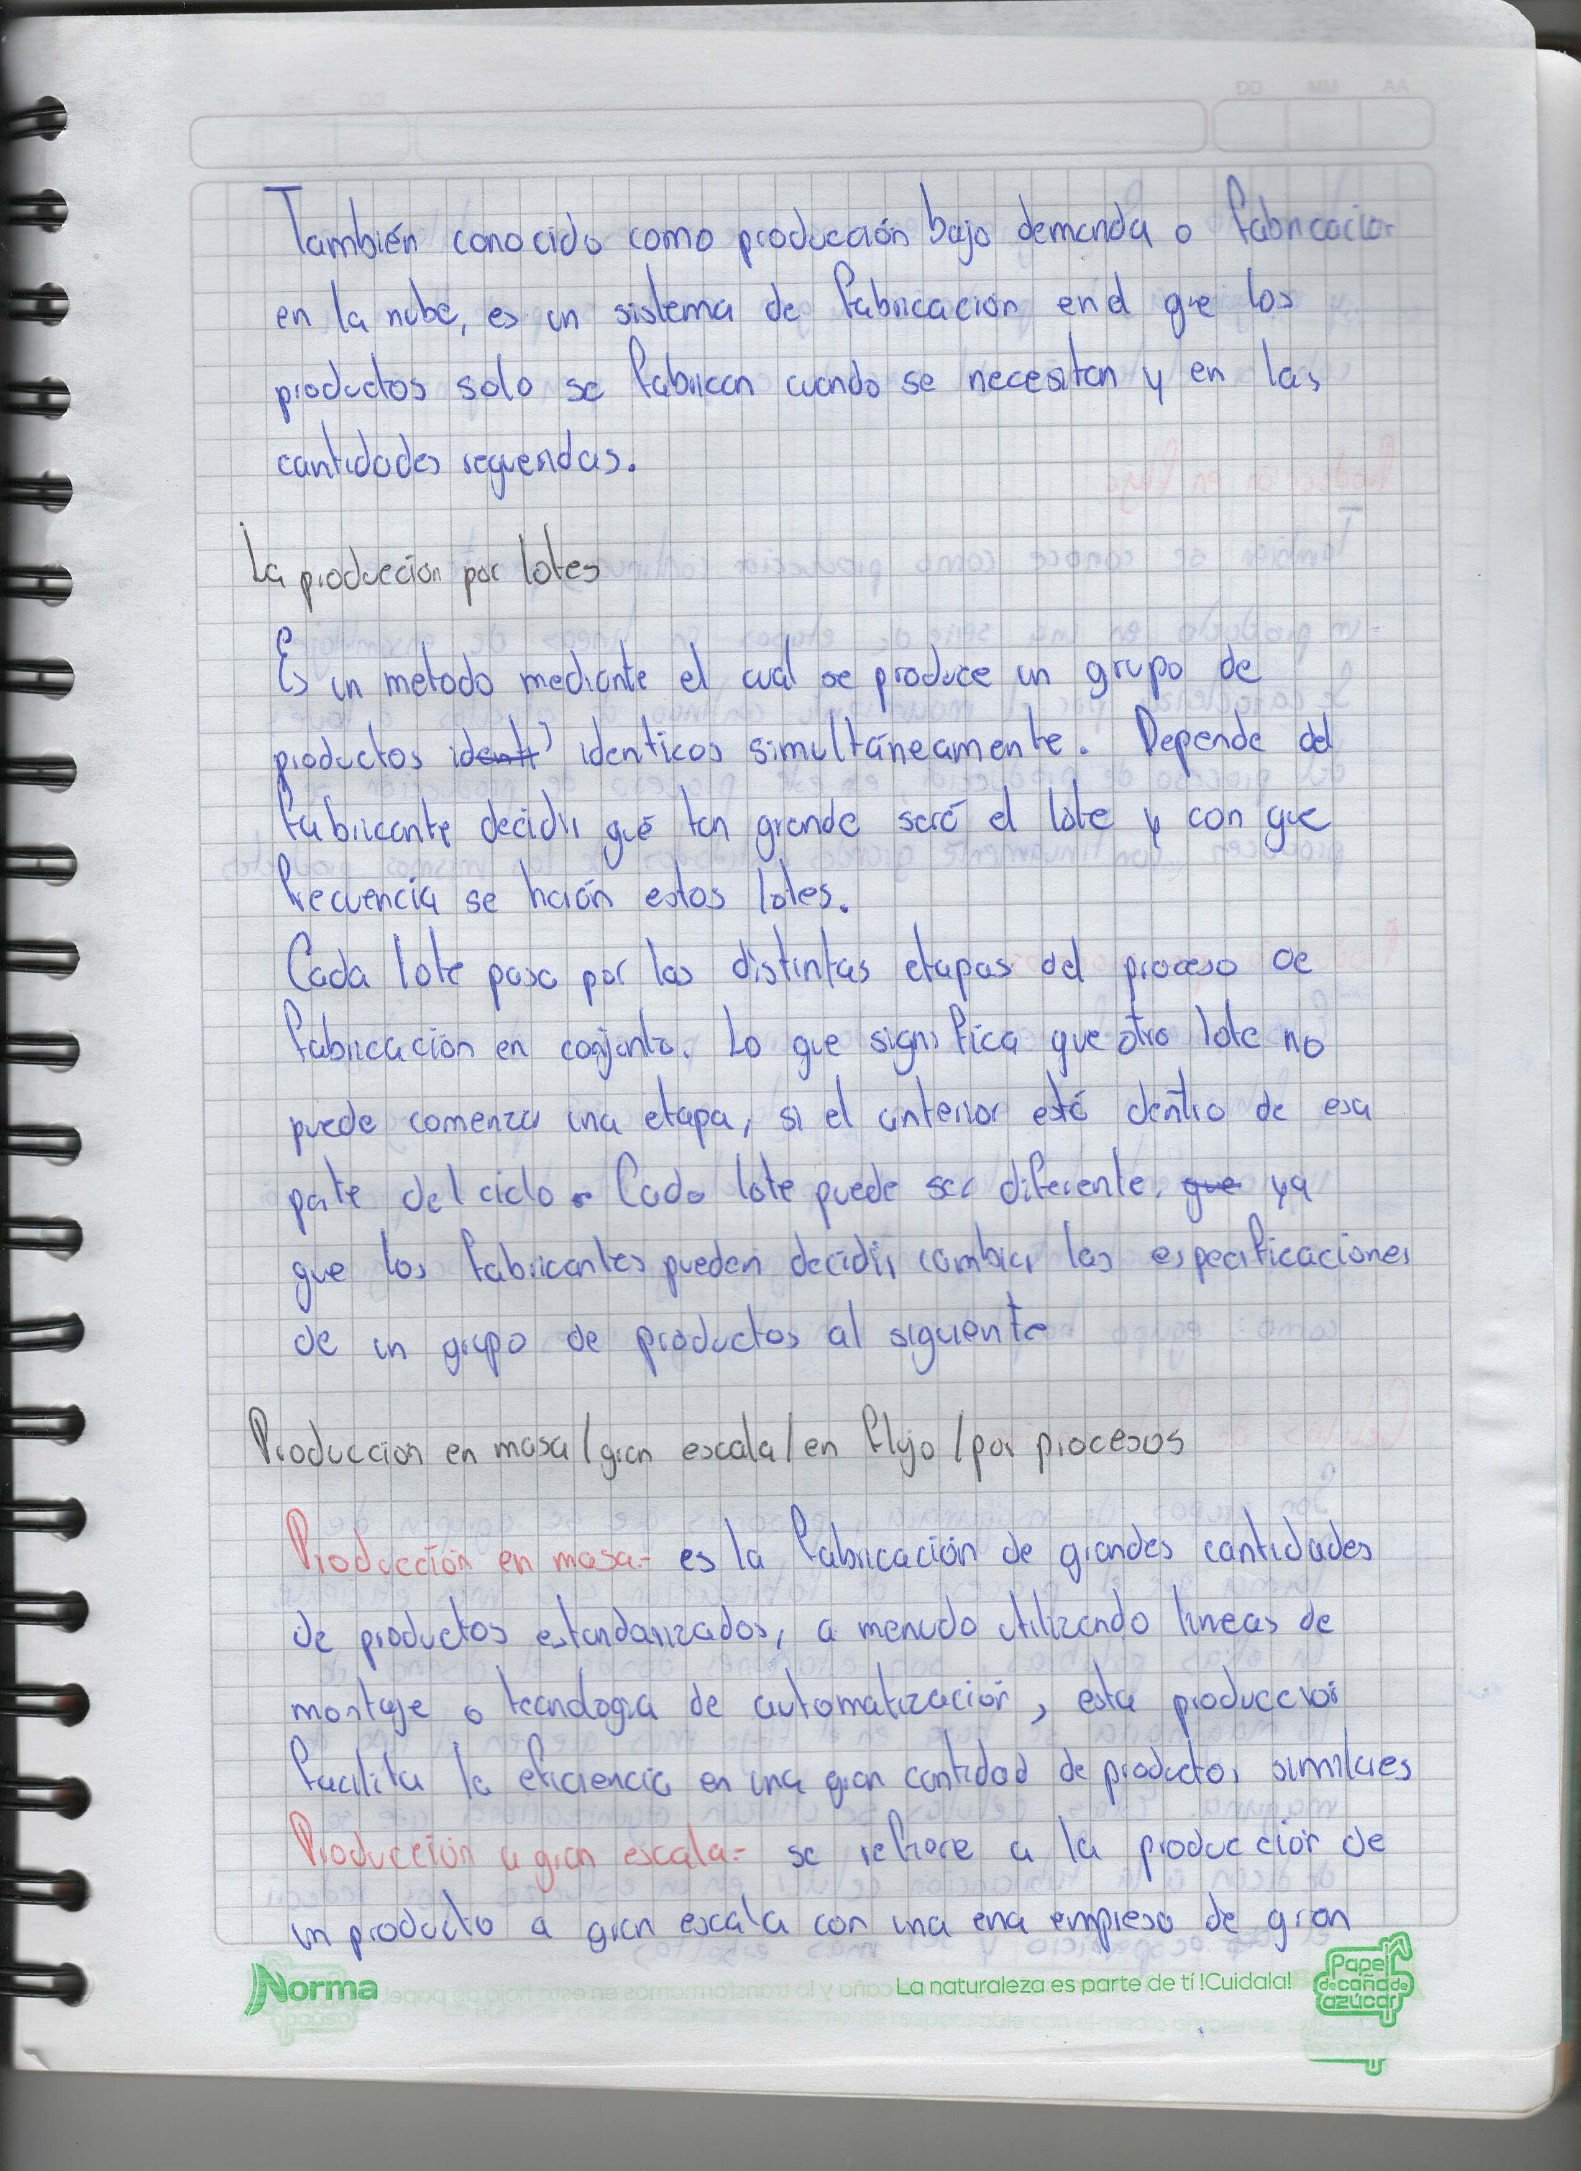 También conocido como producción bajo demanda o fabricacion
en la nube, es un sistema de fabricación en el que los
productos solo se fabrican cuando se necesitan y en las
cantidades requeridas.
La producción por lotes
Es un metodo mediante el cual se produce un grupo de
productos identi identicos simultáneamente. Depende del
fabricante decidir qué tan grande será el lote y con que
frecuencia se harán estos lotes.
Cada lote pasa por las distintas etapas del proceso de
fabricación en conjunto. Lo que significa que otro lote no
puede comenzar una etapa, si el anterior esté dentro de esa
parte del ciclo. Cada lote puede ser diferente, que ya
que los fabricantes pueden decidir cambiar las especificaciones
de un grupo de productos al siguiente
Produccion en masa/gran escala/en flujo/por procesos
Producción en masa.- es la fabricación de grandes cantidades
de productos estandarizados, a menudo utilizando lineas de
montaje o tecnologia de automatización, esta produccion
facilita la eficiencia en una gran cantidad de productos similares
Producción a gran escala.- se refiere a la producción de
un producto a gran escala con una ena empresa de gran
Norma
La naturaleza es parte de tí !Cuidala!
Papel
de caña de
azúcar
DD MM AA